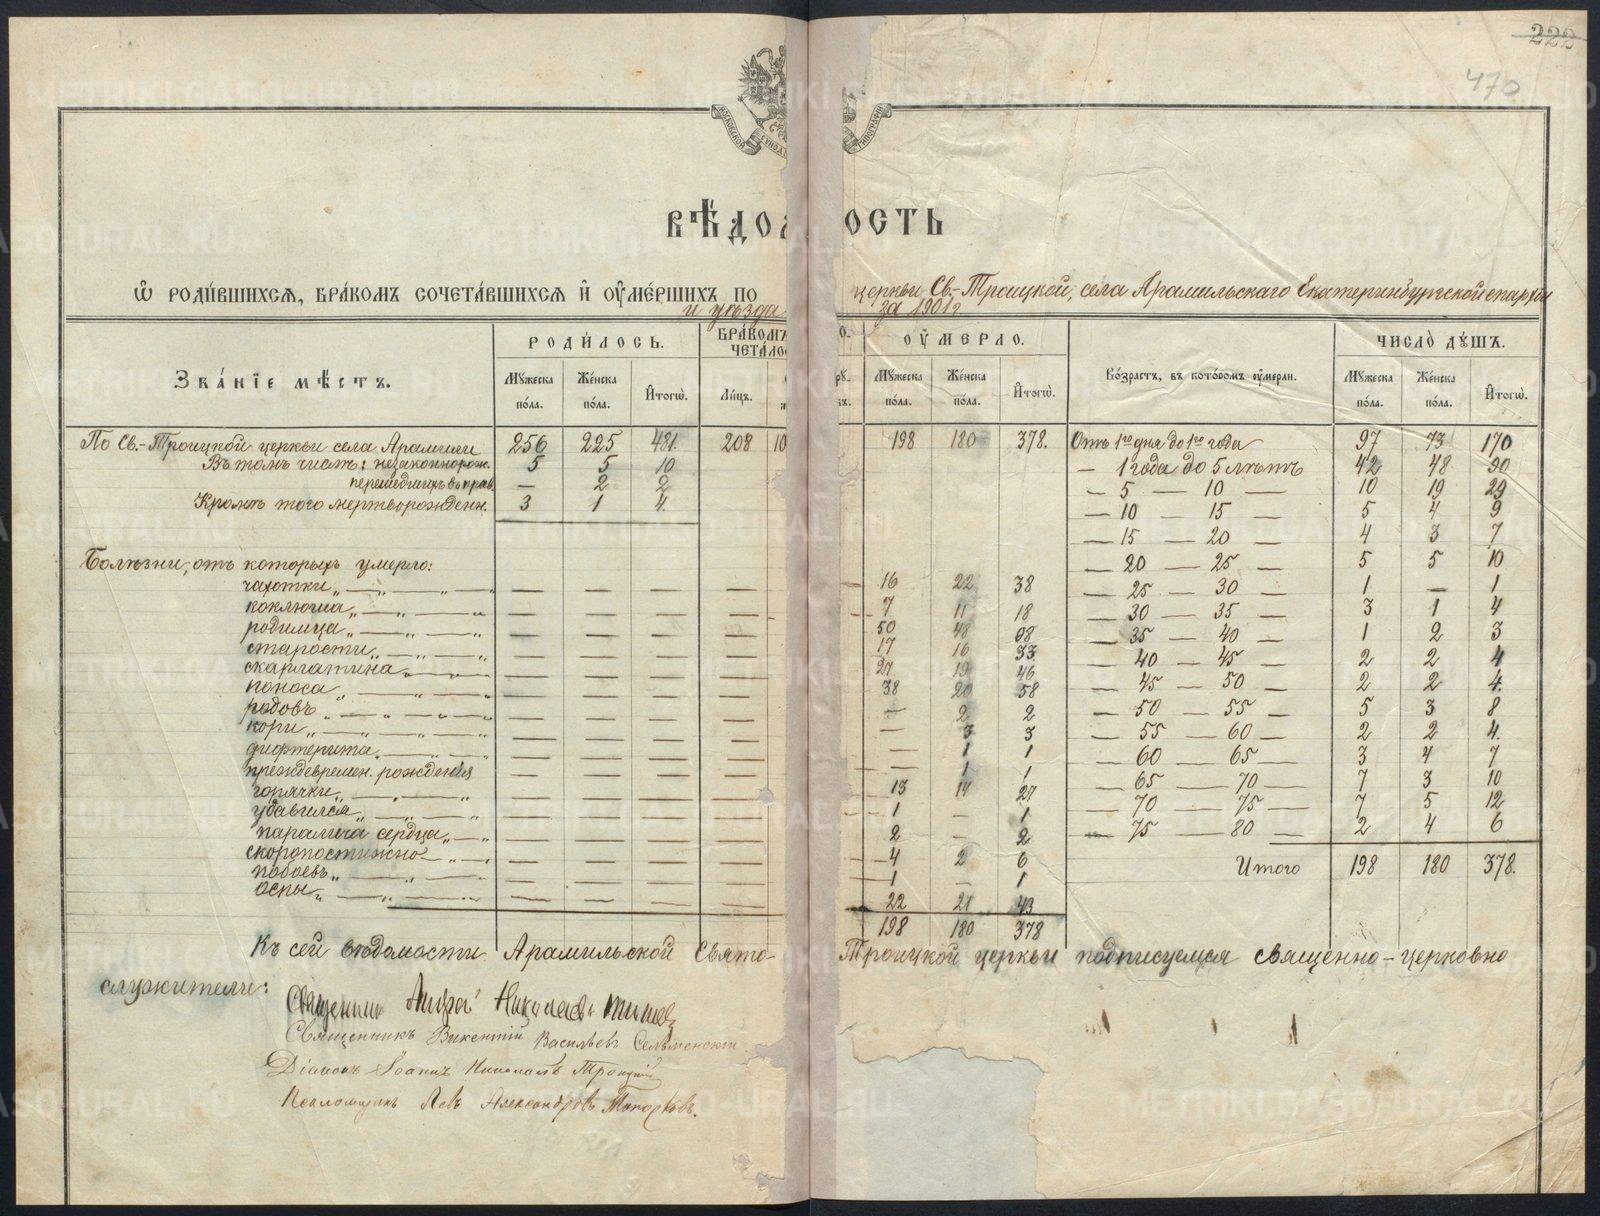 222
470
МОСКОВСКОЙ СѴНОД ТИПОГРАФІИ
ВѢДО ОСТЬ
Ѡ РОДИ́ВШИХСѦ, БРА́КОМЪ СОЧЕТА́ВШИХСѦ И҆ ОУ҆МЕ́РШИХЪ ПО церкви Св.-Троицкой, села Арамильскаго Екатеринбургской епархіи
и уѣзда за 1901 г.
ЗВА́НІЕ МѢ́СТЪ. РОДИ́ЛОСЬ. БРА́КОМЪ О. ОУ҆́МЕРЛО. Во́зрастъ, въ кото́ромъ оу҆́мерли. ЧИСЛО̀ ДꙊ́ШЪ.
ЧЕТА́ЛО
Мꙋ́жеска по́ла. Же́нска по́ла. И҆того̀. Ли́цъ. Мꙋ́жеска по́ла. Же́нска по́ла. И҆того̀. Мꙋ́жеска по́ла. Же́нска по́ла. И҆того̀.
По Св.-Троицкой церкви села Арамили 256 225 481. 208 10 198 180 378. Отъ 1го дня до 1го года 97 73 170
Въ томъ числѣ: незаконнорож. 5 5 10 — 1 года до 5 лѣтъ 42 48 90
перешедшихъ въ прав. — 2 2 — 5 — 10 — 10 19 29
Кромѣ того мертворожденн. 3 1 4. — 10 — 15 — 5 4 9
— 15 — 20 — 4 3 7
Болѣзни, отъ которыхъ умерло: — 20 — 25 — 5 5 10
чахотки „ — „ — „ — — — — 16 22 38 — 25 — 30 — 1 — 1
коклюша „ — „ — „ — — — — — 7 11 18 — 30 — 35 — 3 1 4
родимца „ — „ — „ — — — — 50 48 98 — 35 — 40 — 1 2 3
старости „ — „ — „ — — — — 17 16 33 — 40 — 45 — 2 2 4
скарлатина „ — „ — — — — 27 19 46 — 45 — 50 — 2 2 4.
поноса „ — „ — „ — — — — 38 20 58 — 50 — 55 — 5 3 8
родовъ „ — „ — „ — — — — — 2 2 — 55 — 60 — 2 2 4.
кори „ — „ — „ — — — — — 3 3 — 60 — 65 — 3 4 7
дифтерита „ — „ — — — — — 1 1 — 65 — 70 — 7 3 10
преждевремен. рожденія — — — — — 1 1 — 70 — 75 — 7 5 12
горячки „ — „ — „ — — — — 13 14 27 — 75 — 80 — 2 4 6
удавился „ — „ — „ — — — — 1 — 1
паралича сердца „ — „ — — — — 2 — 2 Итого 198 180 378.
скоропостижно — „ — „ — — — — 4 2 6
побоевъ „ — „ — „ — — — — 1 — 1
оспы „ — „ — „ — — — — 22 21 43
198 180 378
Къ сей вѣдомости Арамильской Свято-Троицкой церкви подписуемся священно-церковно
служители:
Священникъ Николаевъ
Священникъ Викентій Васильевъ Сельменскій
Діаконъ Іоаннъ Николаевъ Троицкій
Псаломщикъ Левъ Александровъ Топорковъ.